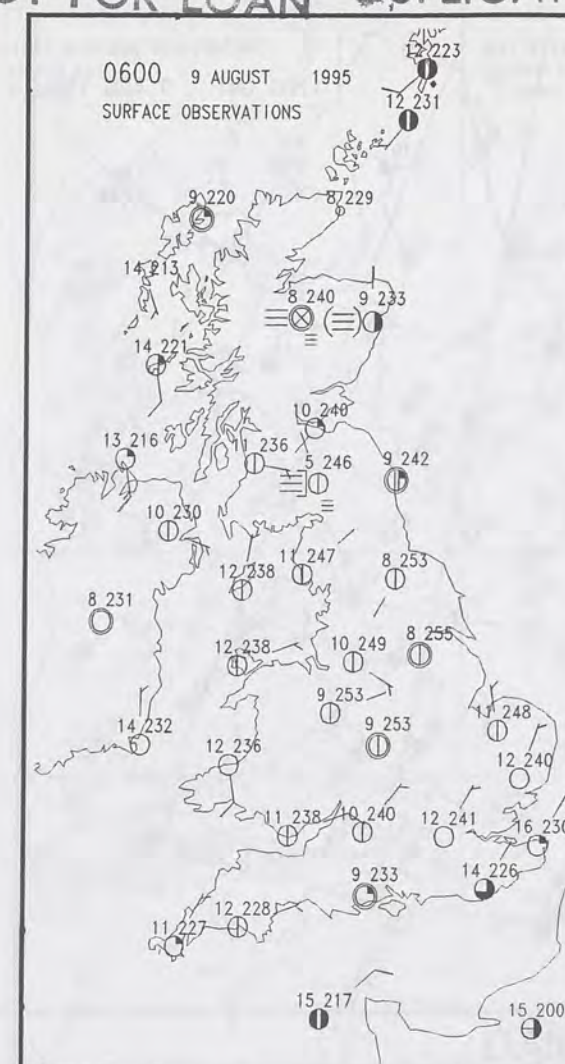 FOR LOAN
12 223
0600 9 AUGUST 1995
SURFACE OBSERVATIONS
12 231
9 220
8 229
14 213
8 240
9 233
14 221
10 240
1 236
13 216
5 246
9 242
10 230
11 247
12 238
8 253
8 231
12 238
10 249
8 255
9 253
14 232
11 248
12 236
9 253
12 240
11 238
10 240
12 241
16 230
9 233
14 226
11 227
12 228
15 217
15 200